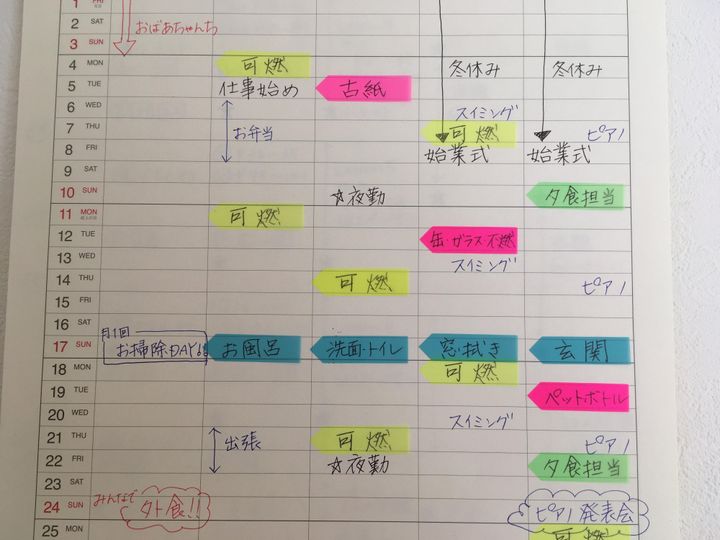 1 FRI
2 SAT おばあちゃんち
3 SUN
4 MON 可燃 冬休み 冬休み
5 TUE 仕事始め 古紙
6 WED スイミング
7 THU お弁当 可燃 ピアノ
8 FRI 始業式 始業式
9 SAT
10 SUN ☆夜勤 夕食担当
11 MON 可燃
12 TUE 缶・ガラス・不燃
13 WED スイミング
14 THU 可燃 ピアノ
15 FRI
16 SAT
月1回
17 SUN お掃除DAY!! お風呂 洗面・トイレ 窓拭き 玄関
18 MON 可燃
19 TUE ペットボトル
20 WED スイミング
21 THU 出張 可燃 ピアノ
22 FRI ☆夜勤 夕食担当
23 SAT
24 SUN みんなで 外食!! ピアノ発表会
25 MON 可燃